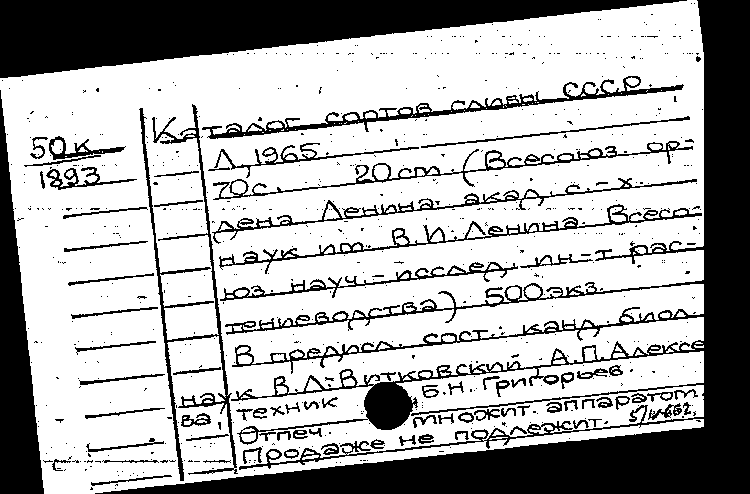 Каталог сортов сливы СССР.
50к
1893
Л., 1965.
70с. 20 cm. (Всесоюз. ор-
дена Ленина акад. с.-х.
наук им. В.И. Ленина. Всесо-
юз. науч.-исслед. ин-т рас-
тениеводства). 500 экз.
В предисл. сост.: канд. биол.
наук В.Л. Витковский, А.П. Алексе
ва, техник Б.Н. Григорьев.
Отпеч. множит. аппаратом.
Продаже не подлежит.